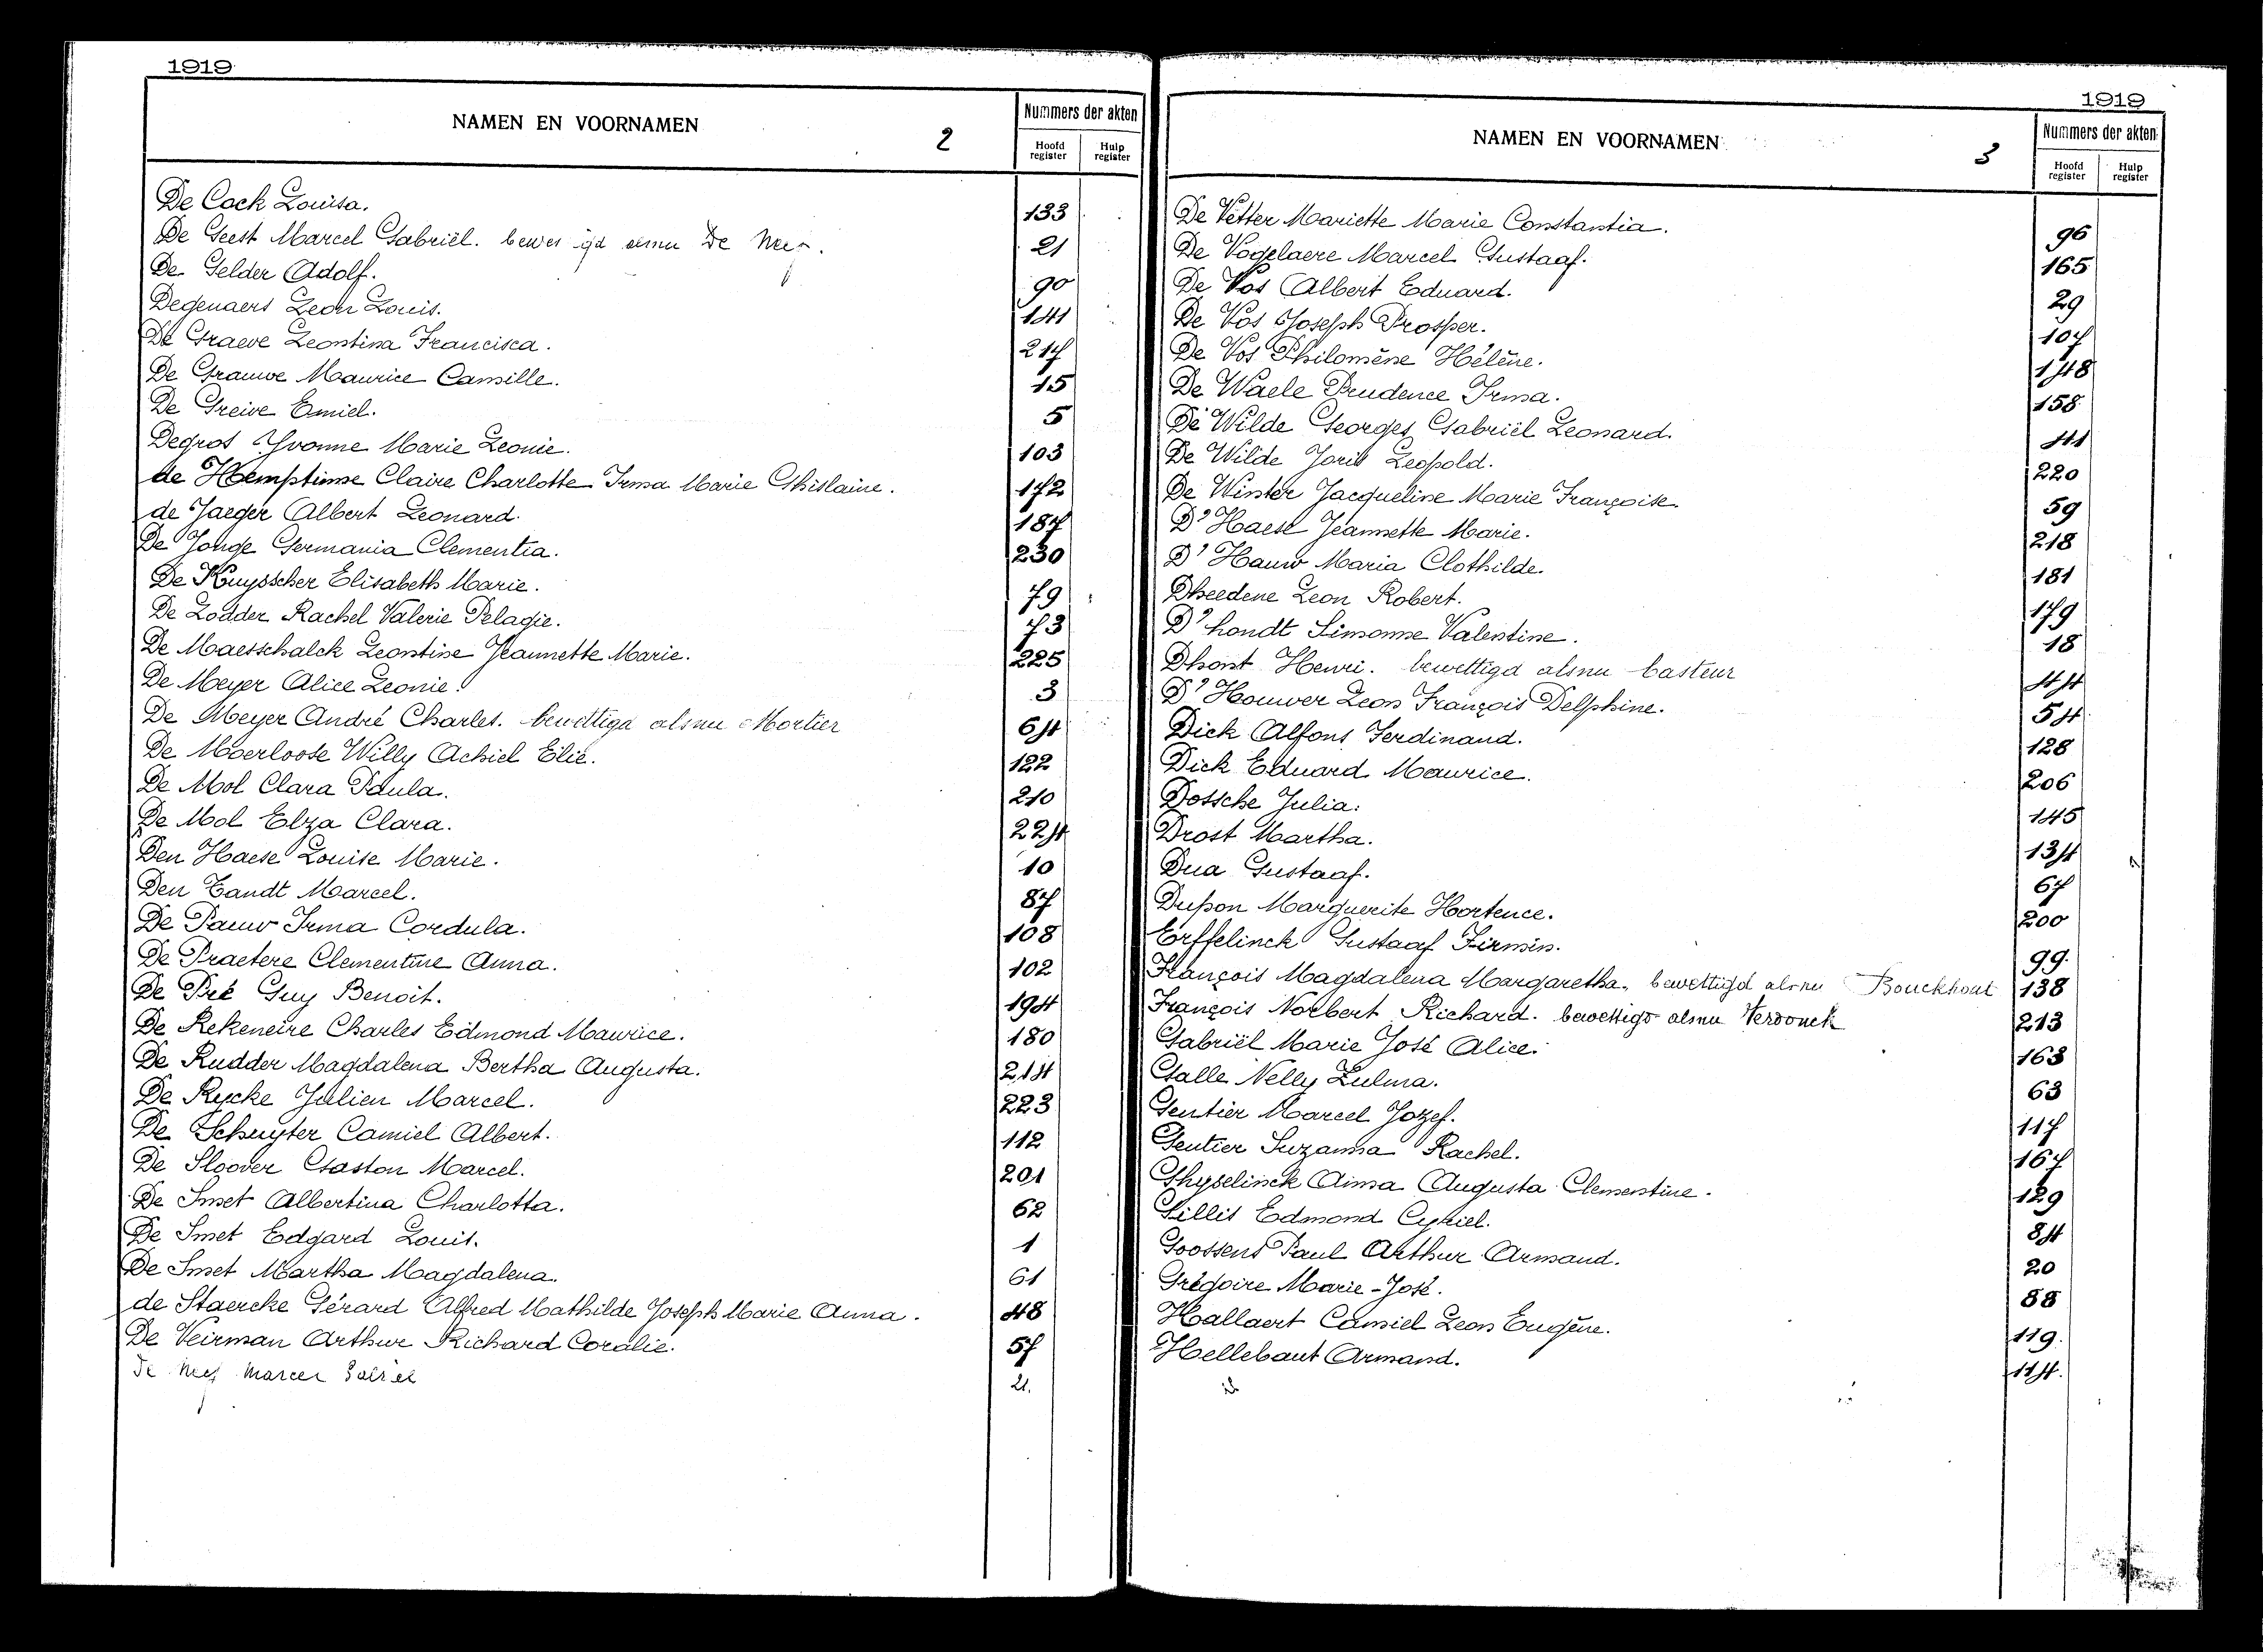 1919
NAMEN EN VOORNAMEN
2
Nummers der akten
Hoofd register
Hulp register
De Cock Louisa. 133
De Geest Marcel Gabriël. alsnu De 21
De Gelder Adolf. 90
Degenaers Leon Louis. 141
De Graeve Leontina Francisca. 217
De Grauwe Maurice Camille. 15
De Greive Emiel. 5
Degros Yvonne Marie Leonie. 103
de Hemptinne Claire Charlotte Irma Marie Ghislaine. 172
de Jaeger Albert Leonard. 187
De Jonge Germania Clementia. 230
De Kuysscher Elisabeth Marie. 79
De Lodder Rachel Valerie Pelagie. 73
De Maesschalck Leontine Jeannette Marie. 225
De Meyer Alice Leonie. 3
De Meyer André Charles. bewettigd alsnu Mortier 64
De Moerloose Willy Achiel Elie. 122
De Mol Clara Paula. 210
De Mol Elza Clara. 224
Den Haese Louise Marie. 10
Den Tandt Marcel. 87
De Pauw Irma Cordula. 108
De Praetere Clementine Anna. 102
De Pré Guy Benoit. 194
De Rekeneire Charles Edmond Maurice. 180
De Rudder Magdalena Bertha Augusta. 214
De Rycke Julien Marcel. 223
De Schuyter Camiel Albert. 112
De Sloover Gaston Marcel. 201
De Smet Albertina Charlotta. 62
De Smet Edgard Louis. 1
De Smet Martha Magdalena. 61
de Staercke Gérard Alfred Mathilde Joseph Marie Anna. 48
De Veirman Arthur Richard Coralie. 57
De Marcel 21.
1919
NAMEN EN VOORNAMEN
3
Nummers der akten
Hoofd register
Hulp register
De Vetter Mariette Marie Constantia. 96
De Vogelaere Marcel Gustaaf. 165
De Vos Albert Eduard. 29
De Vos Joseph Prosper. 107
De Vos Philomène Hélène. 148
De Waele Prudence Irma. 158
De Wilde Georges Gabriël Leonard. 41
De Wilde Joris Leopold. 220
De Winter Jacqueline Marie Françoise. 59
D'Haese Jeannette Marie. 218
D'Hauw Maria Clothilde. 181
Dheedene Leon Robert. 179
D'hondt Simonne Valentine. 18
Dhont Henri. bewettigd alsnu Casteur 44
D'Houwer Leon François Delphine. 54
Dick Alfons Ferdinand. 128
Dick Eduard Maurice. 206
Dossche Julia. 145
Drost Martha. 134
Dua Gustaaf. 67
Dupon Marguerite Hortence. 200
Erffelinck Gustaaf Firmin. 99
François Magdalena Margaretha. bewettigd alsnu Bouckhout 138
François Norbert Richard. bewettigd alsnu Verdonck 213
Gabriël Marie José Alice. 163
Galle Nelly Zulma. 63
Gentier Marcel Jozef. 117
Gentier Suzanna Rachel. 167
Ghyselinck Anna Augusta Clementine. 129
Gillis Edmond Cyriel. 84
Goossens Paul Arthur Armand. 20
Grégoire Marie-José. 88
Hallaert Camiel Leon Eugène. 119.
Hellebaut Armand. 114.